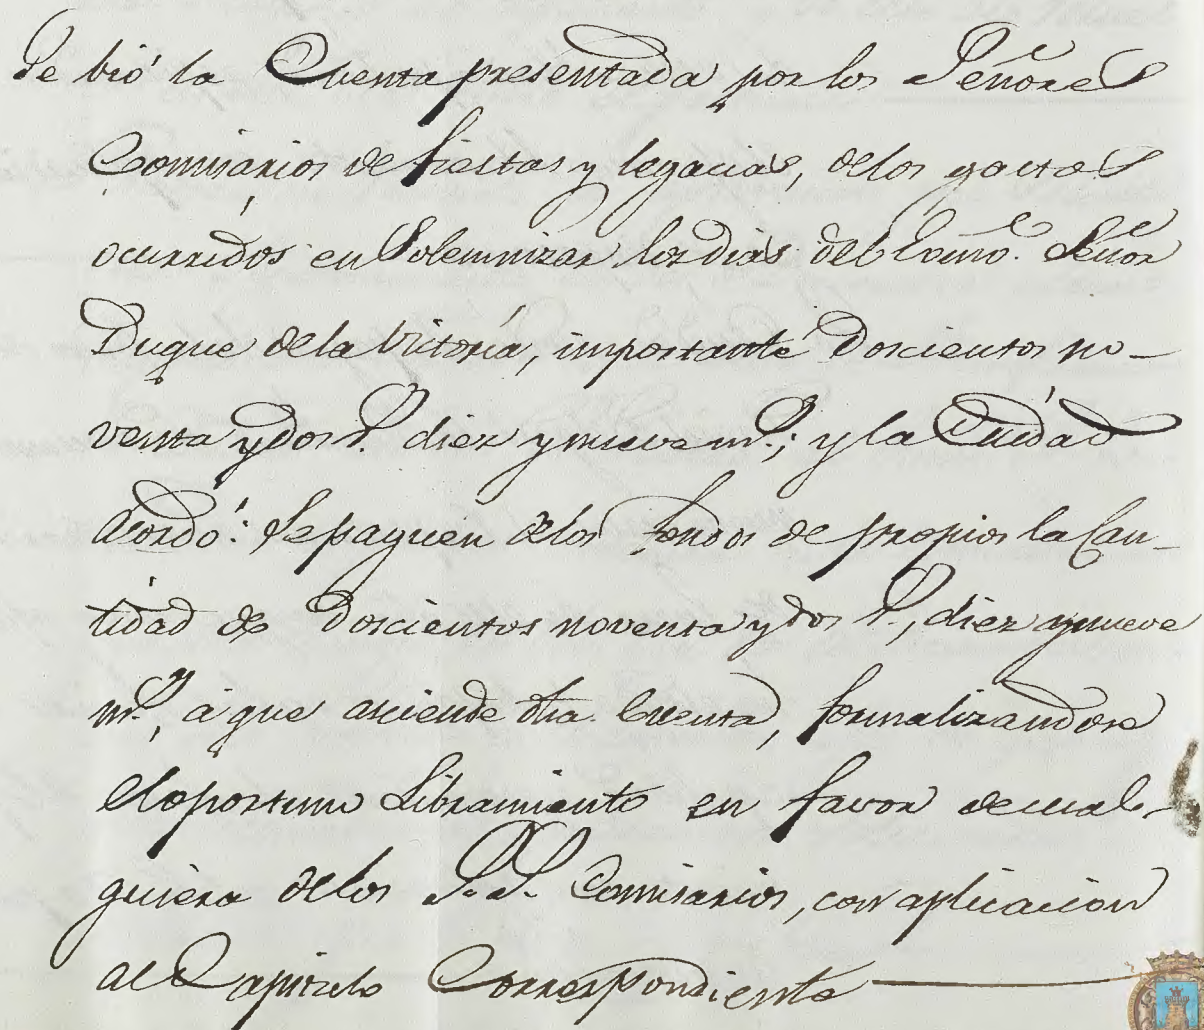 Se bió la Cuenta presentada por los Señores
Comisarios de fiestas y legacias, delos gastos
ocurridos en Solemnizar los dias del Exmo. Señor
Duque dela Victoria, importante Doscientos no-
venta y dos r.s diez y nueve m.s; y la Ciudad
acordó: Se paguen delos fondos de propios la Can-
tidad de Doscientos noventa y dos r.s, diez y nueve
m.s, á que asciende dha. Cuenta, formalizandose
el oportuno Libramiento en favor de cual-
quiera delos S.S. Comisarios, con aplicacion
al Capitulo Correspondiente